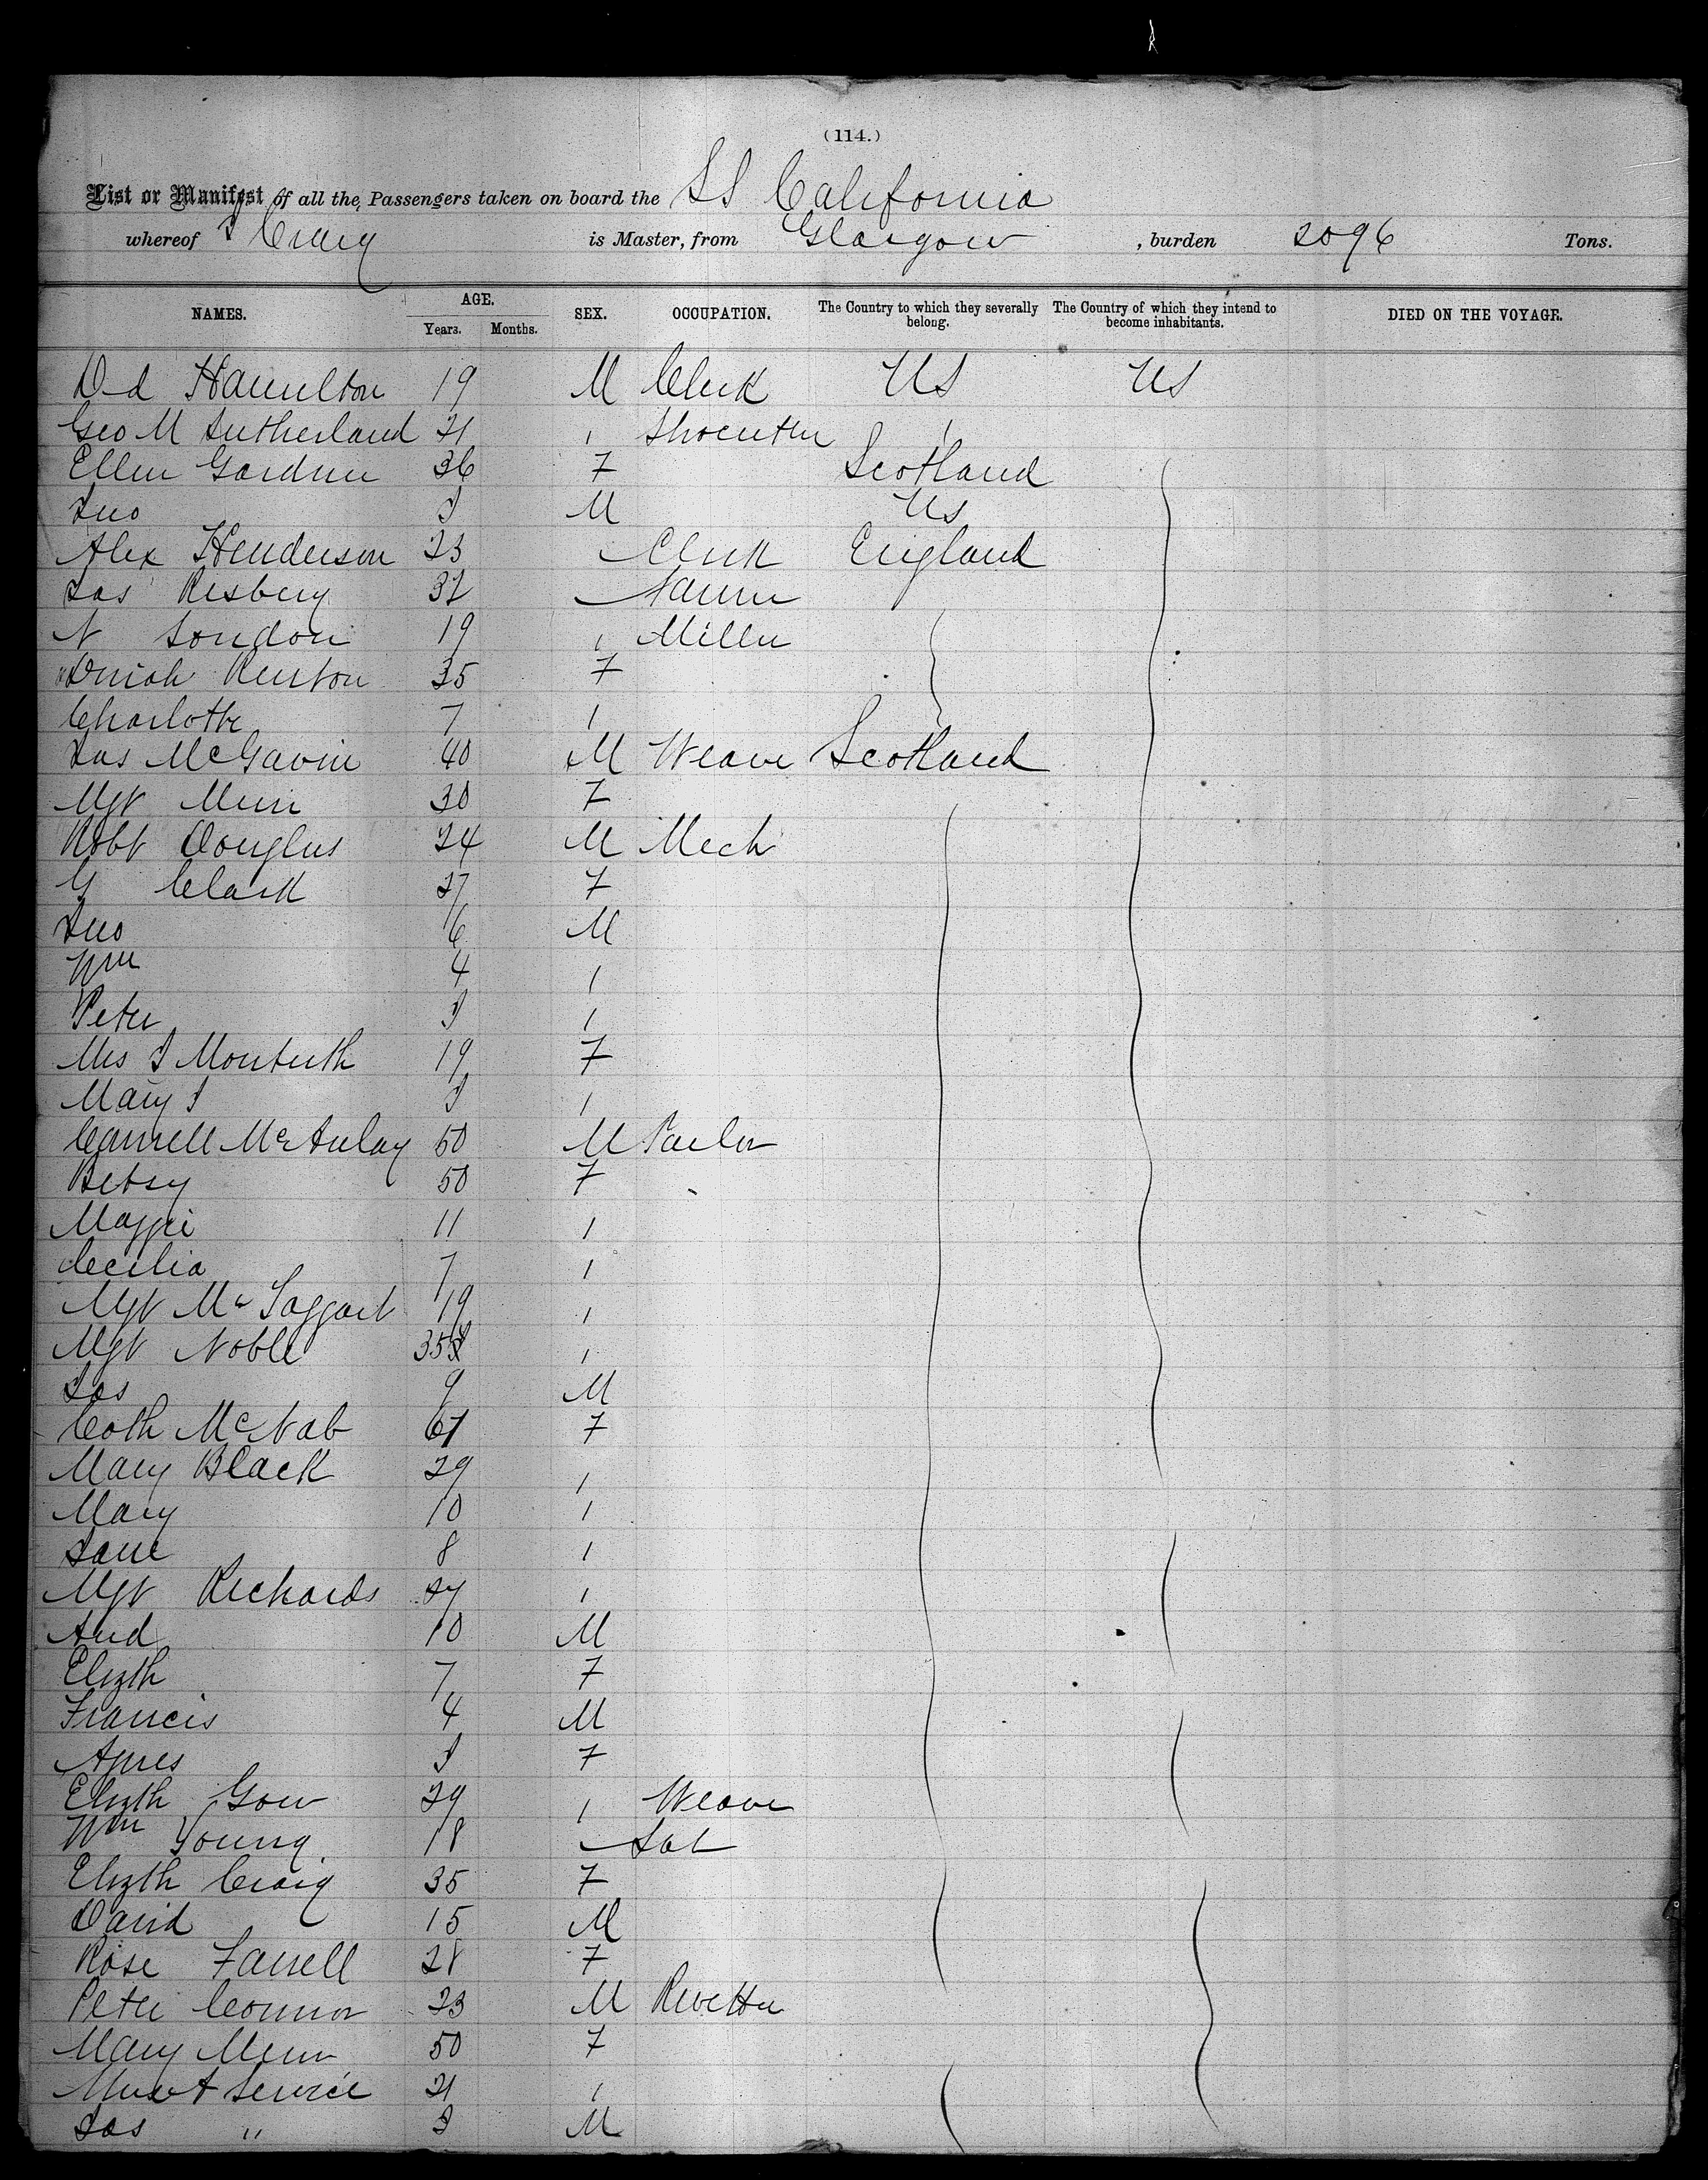 (114.)
List or Manifest of all the Passengers taken on board the SS California
whereof J Craig is Master, from Glasgow, burden 2096 Tons.
NAMES. AGE. Years. Months. SEX. OCCUPATION. The Country to which they severally belong. The Country of which they intend to become inhabitants. DIED ON THE VOYAGE.
Dd Hamilton 19 M Clerk US US
Geo M Sutherland 21 " "
Ellen Gardner 36 F Scotland
Jno M US
Alex Henderson 23 Clerk England
Jas Risbery 32
N London 19 " Miller
Renton 35 F
Charlotte 7 "
Jas McGavin 40 M Weaver Scotland
Mgt Muir 30 F
Robt Douglas 24 M Mech
G Clark 27 F
Jno 6 M
Wm 4 "
Peter "
Mrs J Monteith 19 F
Mary J "
McAulay 50 M Tailor
Betsy 50 F
Maggie 11 "
Cecilia 7 "
Mgt McTaggart 19 "
Mgt Noble "
Jas 9 M
Cath McNab F
Mary Black 29 "
Mary 10 "
Jane 8 "
Mgt Richards 27 "
And 10 M
Elizth 7 F
Francis 4 M
Agnes F
Elizth Gow 29 " Weaver
Wm Young 18 Lab
Elizth Craig 35 F
David 15 M
Rose Farrell 28 F
Peter Connor 23 M Rivetter
Mary 50 F
Service 21 "
Jas " M